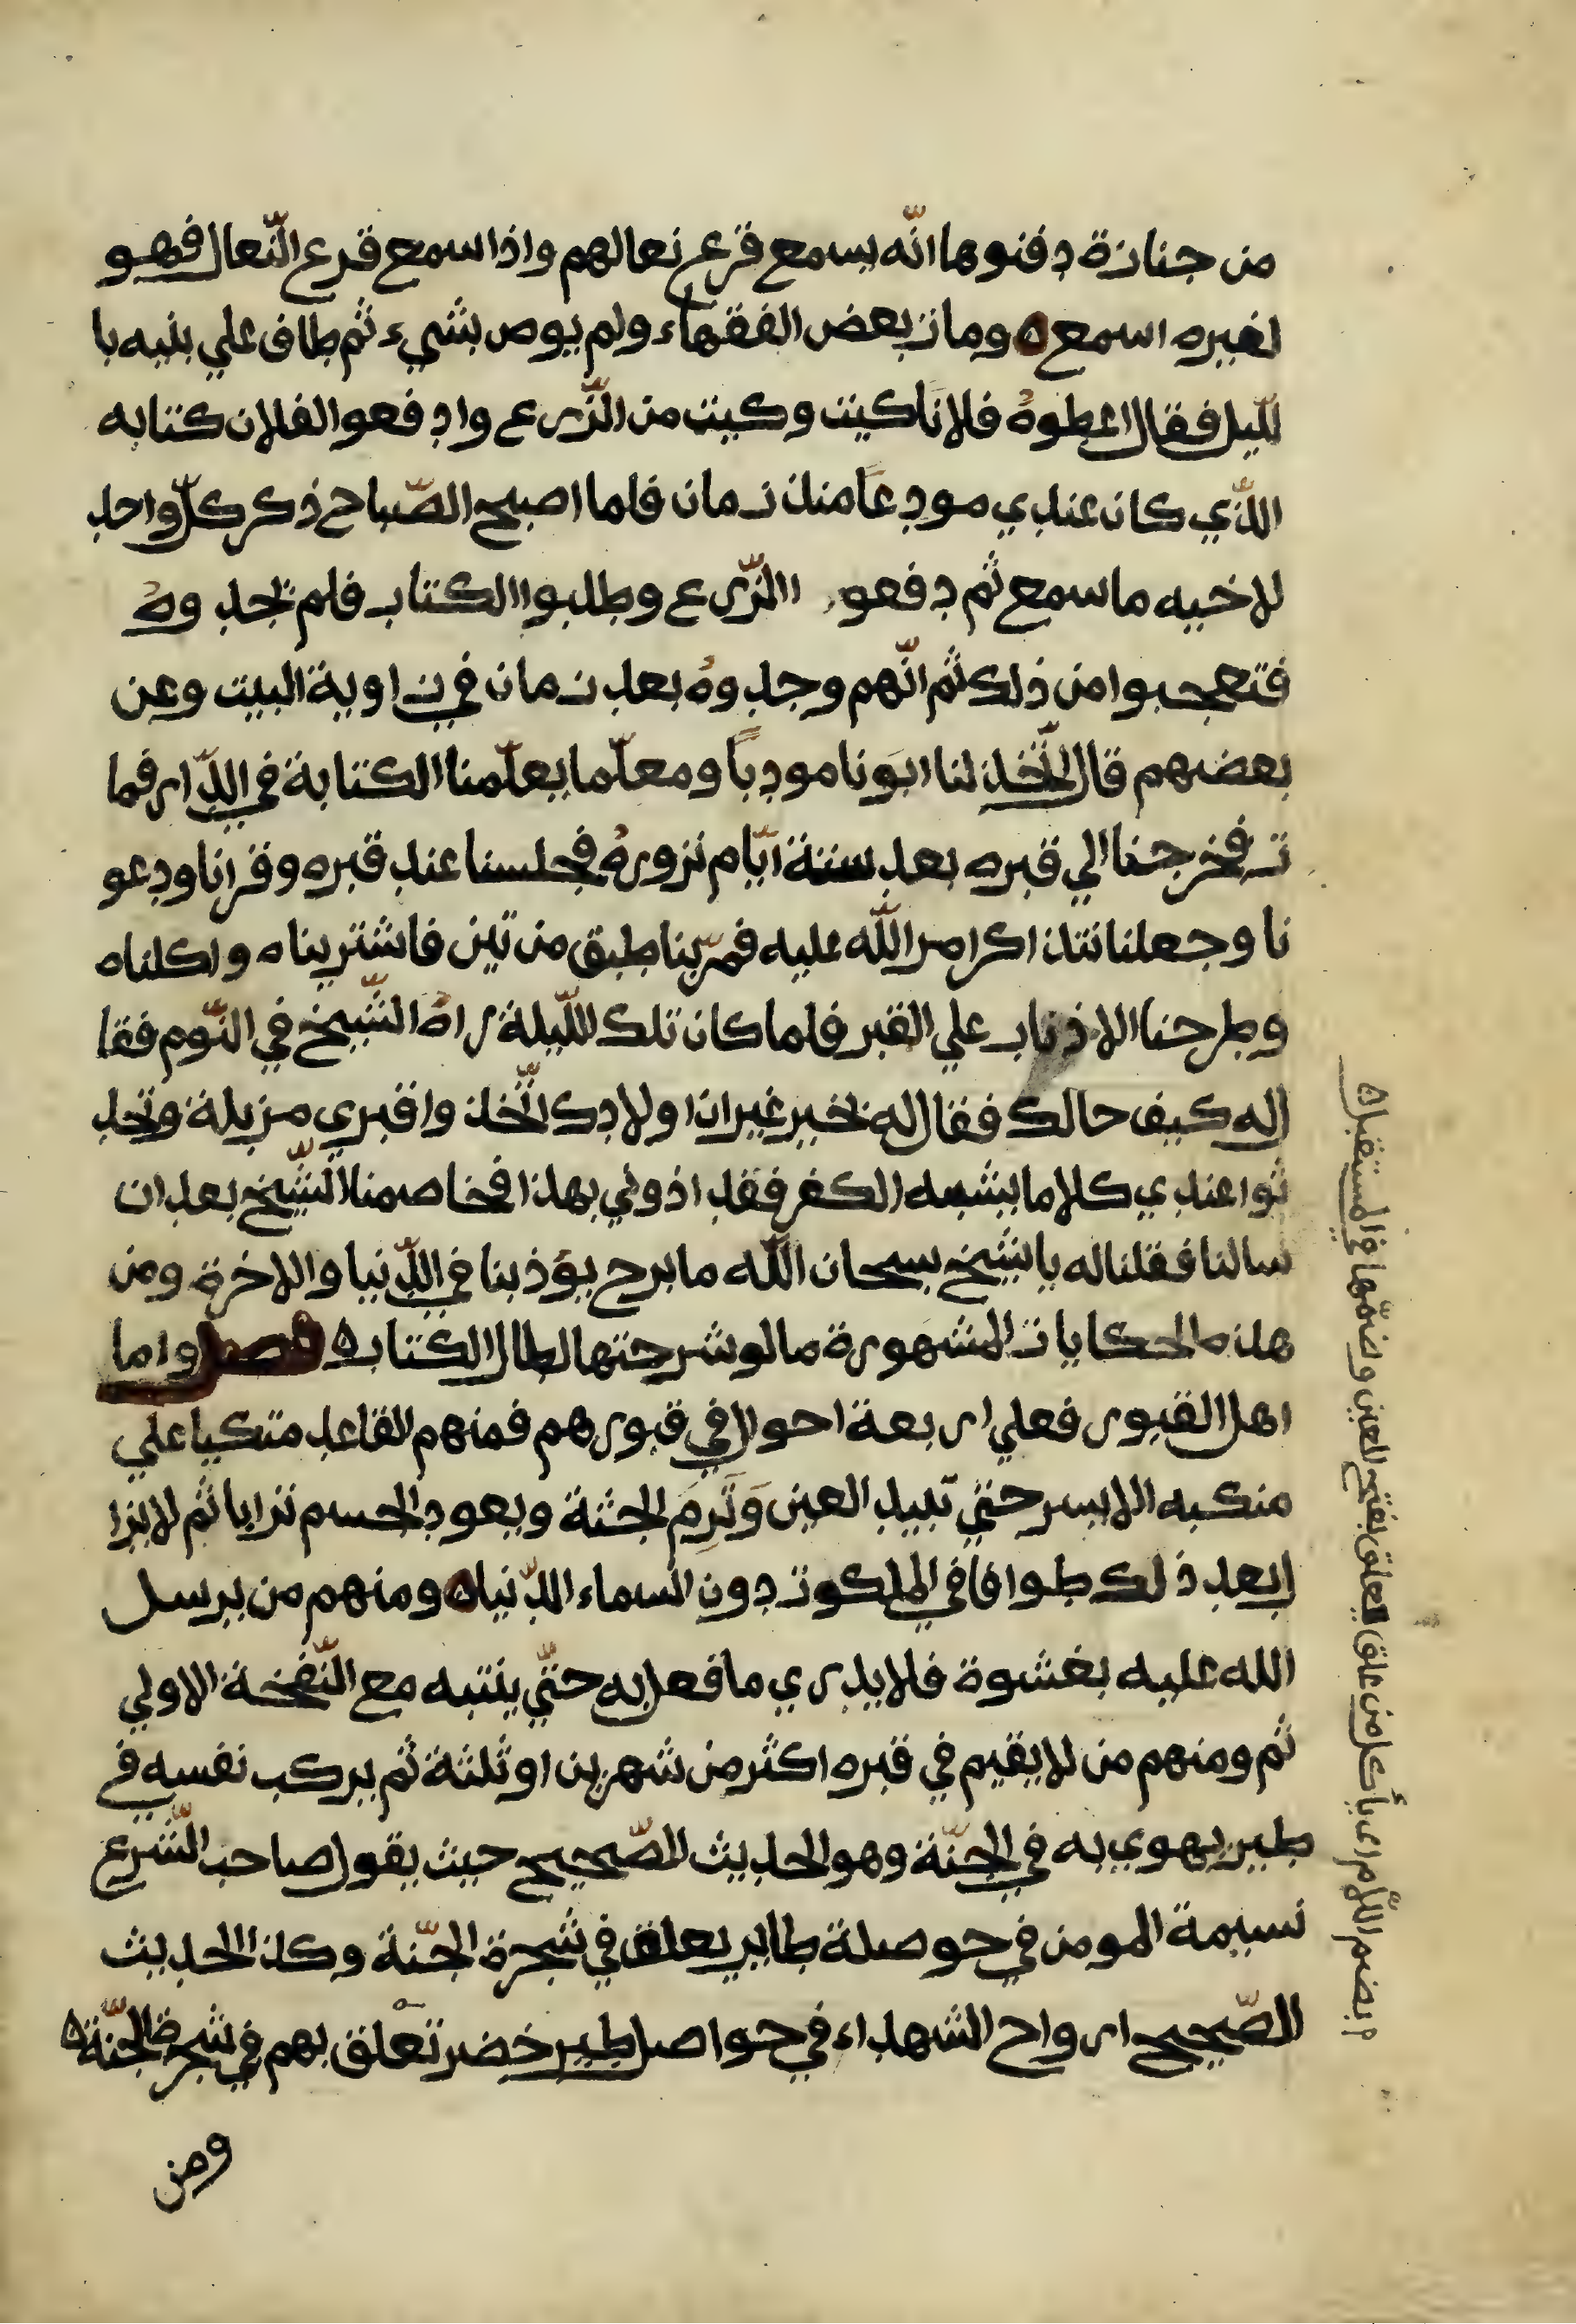 من جنازة دفنوها انّه يسمع قرع نعالهم واذا سمع قرع النّعال فهو
لغيره اسمع ه ومات بعض الفقهاء ولم يوص بشيء ثم طاف علي بنيه با
لليل فقال اعطوهُ فلاناً كيت وكيت من الزّرع وادفعوا لفلان كتابه
الذّي كان عندي مودعاً منذ زمان فلما اصبح الصّباح ذكر كلّ واحد
لاخيه ما سمع ثم دفعو االزّرع وطلبوا الكتاب فلم يجدوهُ
فتعجبوا من ذلك ثم انّهم وجدوهُ بعد زمان في زاوية البيت وعن
بعضهم قال اتّخذ لنا ابَونا مودباً ومعلّما يعلّمنا الكتابة في الدّار فما
ت فخرجنا الي قبره بعد ستة ايّام نزورهُ فجلسنا عند قبره وقرانا ودعو
نا وجعلنا نتذاكر امر اللّه عليه فمرّ بنا طبق من تين فاشتريناه واكلناه
وطرحنا الاذناب علي القبر فلما كان تلك اللّيلة راهُ الشّيخ في النّوم فقا
ل له كيف حالك فقال له بخير غير ان اولادك اتّخذ وا قبري مزبلة وتحد
ثوا عندي كلاما يشبه الكفر فقد اذوني بهذا فخاصمنا الشّيخ بعد ان
سالنا فقلنا له يا شيخ سبحان اللّه ما برح يؤذبنا في الدّنيا والاخرة ومن
هذه الحكايات المشهورة ما لو شرحتها لطال الكتاب ه فصل واما
اهل القبور فعلي اربعة احوال في قبورهم فمنهم القاعد متكيا علي
منكبه الايسر حتي تبيد العين وَتَرِمَ الجثة ويعود الجسم ترابا ثم لا يزا
ل بعد ذلك طوافا في الملكوت دون السماء الدّنيا ه ومنهم من يرسل
الله عليه بغشوة فلا يدري ما فعل به حتّي ينتبه مع النّفخة الاولي
ثم ومنهم من لا يقيم في قبره اكثر من شهرين او ثلثة ثم يركب نفسه في
طير يهوي به في الجنّة وهو الحديث الصّحيح حيث يقول صاحب الشّرع
نسيمة المومن في حوصلة طاير يعلق في شجرة الجنّة وكذا الحديث
الصّحيح ارواح الشهداء في حواصل طير خضر تعْلق بهم في شجرة الجنّة ه
ومن
م بضم اللّام اى يأكل من علق يعلق بفتح العين وضمّها في المستقبل ه